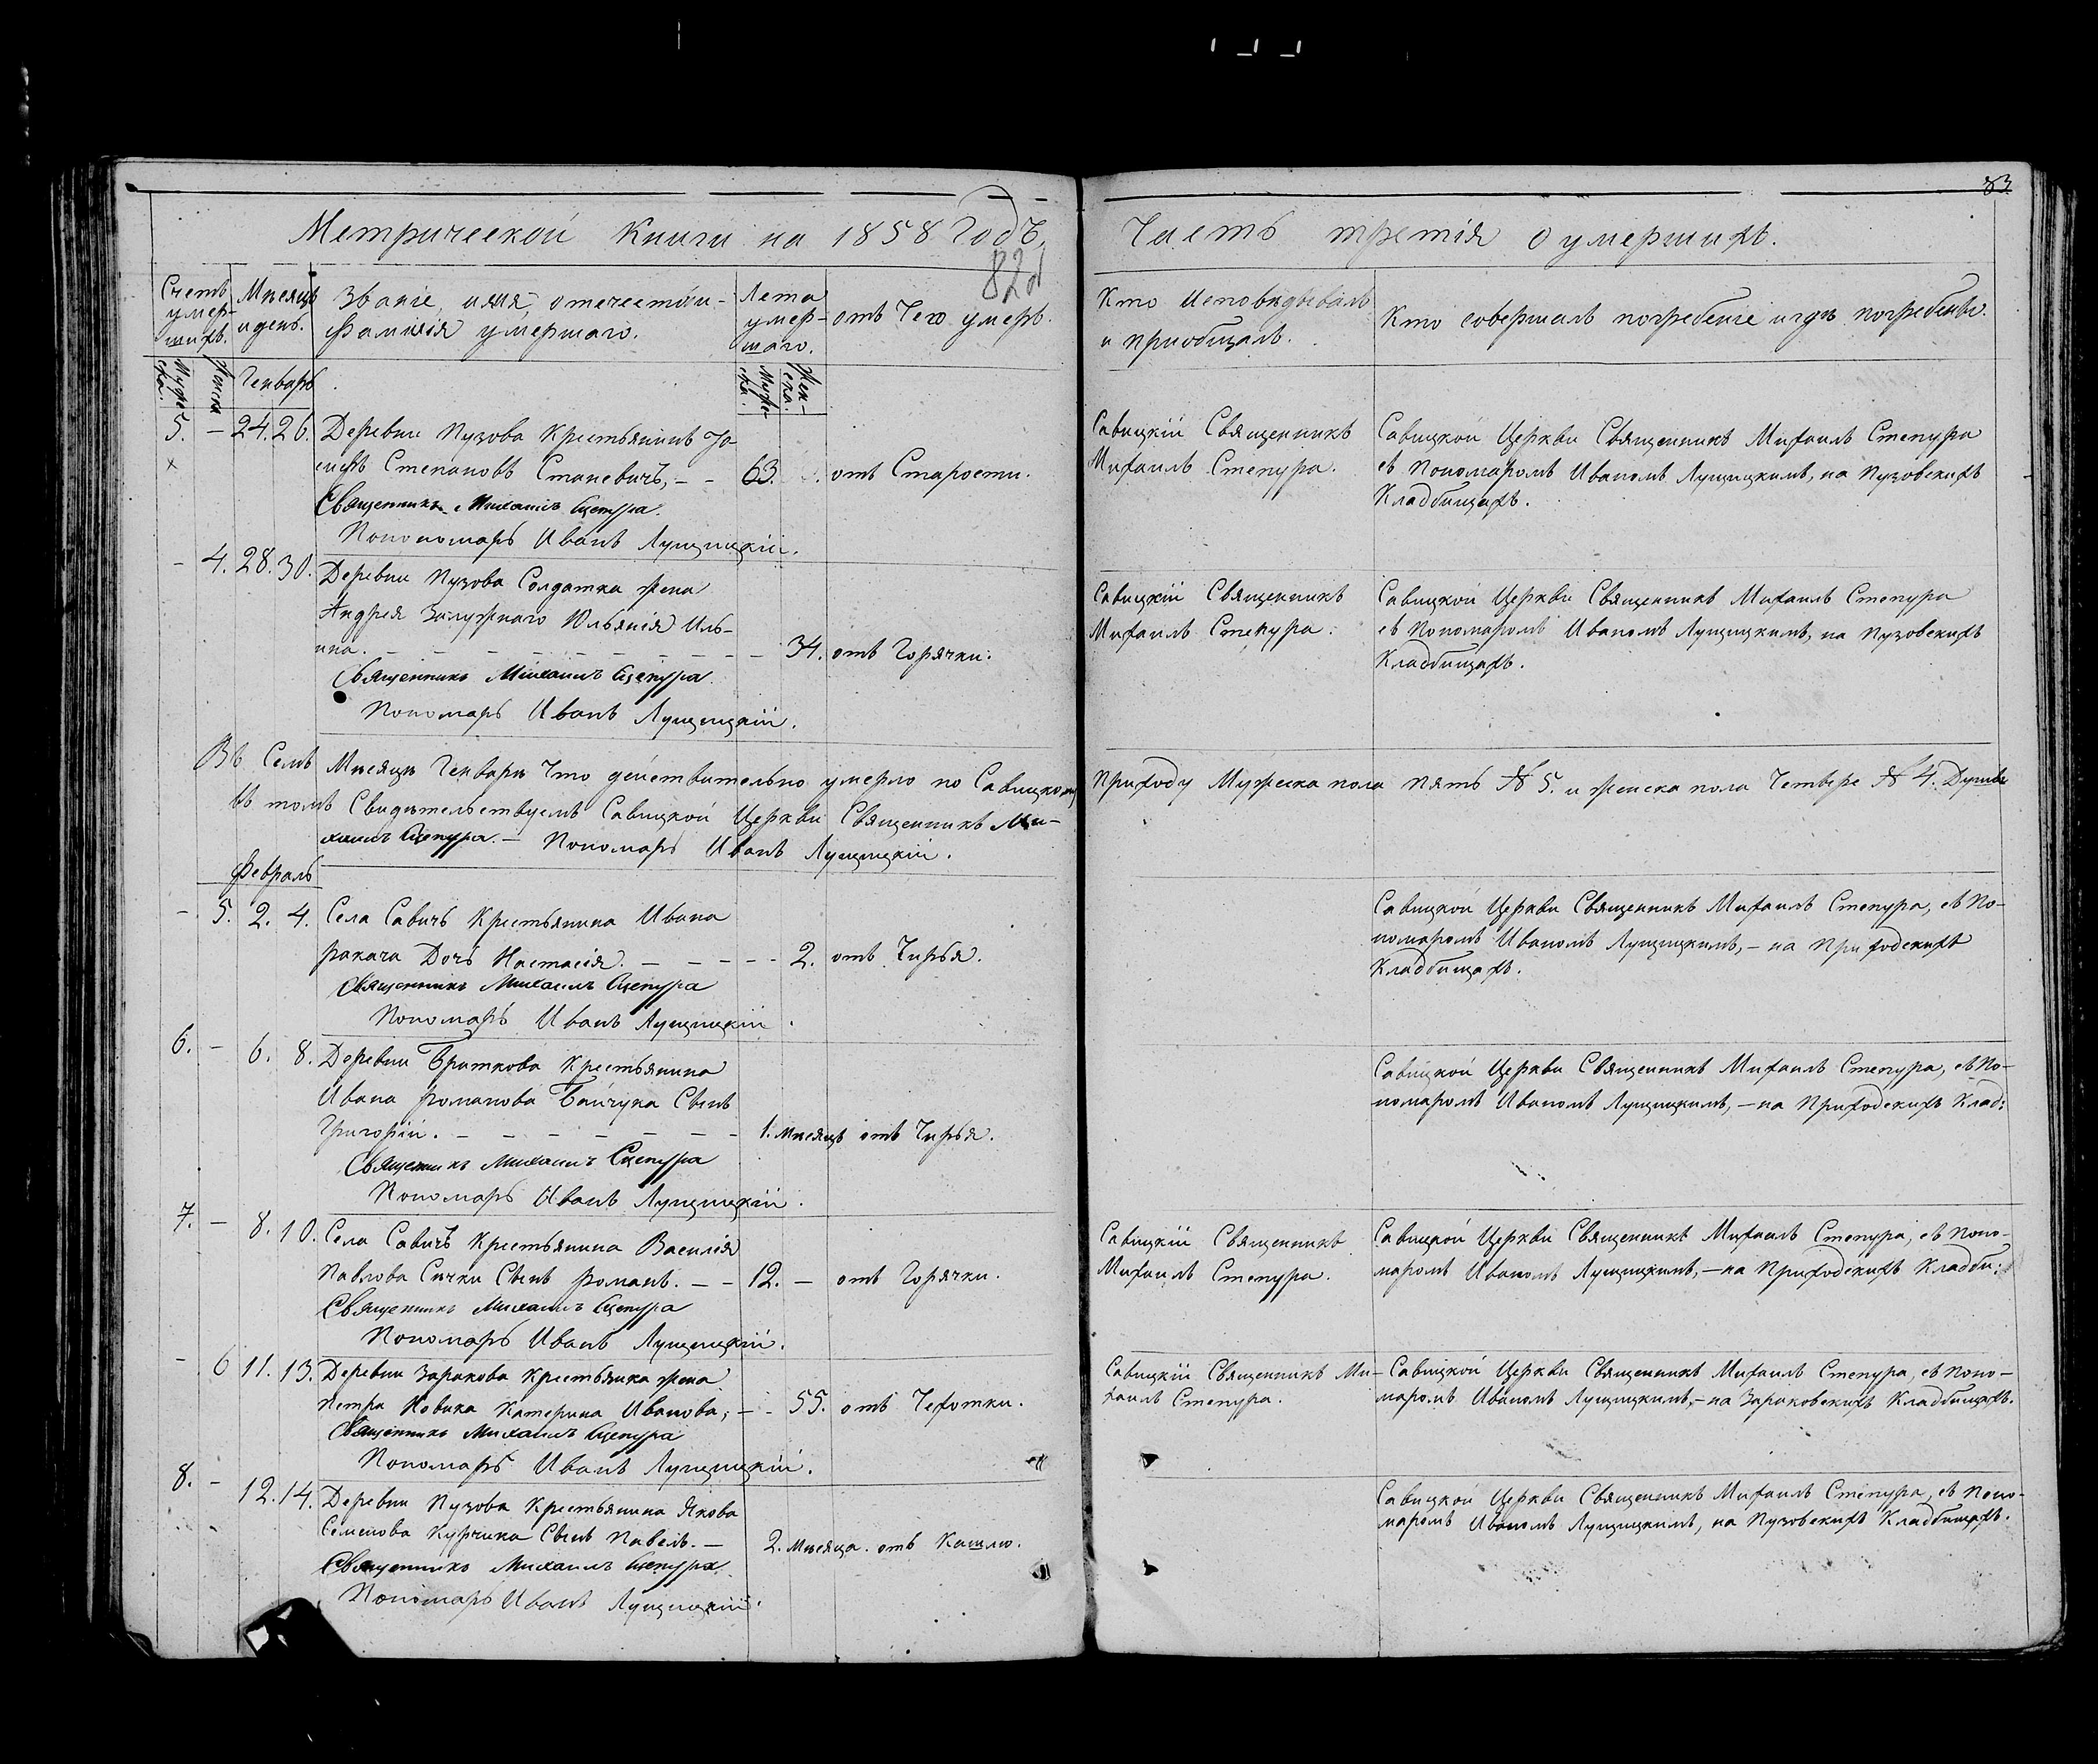 83
Метрической Книги на 1858 Годъ.
Часть третія о умершихъ.
82
Счетъ умер-шихъ.
Мѣсяцъ и день.
Званіе, имя, отечество и фамилія умершаго.
Лета умер-шаго.
отъ Чего умеръ.
Кто Исповѣдывалъ и приобщалъ.
Кто совершалъ погребеніе и гдѣ погребенъ.
Мужеска.
Женска
Генварь
Мужес-ка.
Жен-ска.
5. – 24. 26. Деревни Пузова Крестьянинъ Іо-
сифъ Степановъ Станевичъ, – – 63. отъ Старости.
Священникъ Михаилъ Сцепура.
Пономарь Иванъ Лущицкій.
Савицкій Священникъ
Михаилъ Сцепура.
Савицкой Церкви Священникъ Михаилъ Сцепура
съ Пономаромъ Иваномъ Лущицкимъ, на Пузовскихъ
Кладбищахъ.
– 4. 28. 30. Деревни Пузова Солдатка жена
Андрея Залужнаго Юльянія Иль-
ина. – – – – 34. отъ Горячки.
Священникъ Михаилъ Сцепура.
Пономарь Иванъ Лущицкій.
Савицкій Священникъ
Михаилъ Сцепура.
Савицкой Церкви Священникъ Михаилъ Сцепура
съ Пономаромъ Иваномъ Лущицкимъ, на Пузовскихъ
Кладбищахъ.
Въ Семъ Мѣсяцѣ Генварѣ Что действительно умерло по Савицкому Приходу Мужеска пола пять № 5. и женска пола Четыре № 4. Душъ
въ томъ Свидѣтельствуемъ Савицкой Церкви Священникъ Ми-
хаилъ Сцепура. – Пономарь Иванъ Лущицкій.
Февраль
– 5. 2. 4. Села Савичъ Крестьянина Ивана
Ракача Дочь Настасія. – – – – 2. отъ Чирья.
Священникъ Михаилъ Сцепура
Пономарь Иванъ Лущицкій.
Савицкой Церкви Священникъ Михаилъ Сцепура, съ По-
номаромъ Иваномъ Лущицкимъ, – на Приходскихъ
Кладбищахъ.
6. – 6. 8. Деревни Браткова Крестьянина
Ивана Романова Байчука Сынъ
Григорій. – – – – 1. Мѣсяцъ отъ Чирья.
Священникъ Михаилъ Сцепура
Пономарь Иванъ Лущицкій.
Савицкой Церкви Священникъ Михаилъ Сцепура, съ По-
номаромъ Иваномъ Лущицкимъ, – на Приходскихъ Клад:
7. – 8. 10. Села Савичъ Крестьянина Василія
Павлова Сички Сынъ Романъ. – – 12. – отъ Горячки.
Священникъ Михаилъ Сцепура
Пономарь Иванъ Лущицкій.
Савицкій Священникъ
Михаилъ Сцепура.
Савицкой Церкви Священникъ Михаилъ Сцепура, съ Поно-
маромъ Иваномъ Лущицкимъ, – на Приходскихъ Кладби:
– 6 11. 13. Деревни Заракова Крестьянка жена
Петра Новика Катерина Иванова, – – 55. отъ Чехотки.
Священникъ Михаилъ Сцепура
Пономарь Иванъ Лущицкій.
Савицкій Священникъ Ми-
хаилъ Сцепура.
Савицкой Церкви Священникъ Михаилъ Сцепура, съ Поно-
маромъ Иваномъ Лущицкимъ, – на Зараковскихъ Кладбищахъ.
8. – 12. 14. Деревни Пузова Крестьянина Якова
Семенова Курчика Сынъ Павелъ. – 2. Мѣсяца. отъ Кашлю.
Священникъ Михаилъ Сцепура.
Пономарь Иванъ Лущицкій.
Савицкой Церкви Священникъ Михаилъ Сцепура, съ Поно-
маромъ Иваномъ Лущицкимъ, на Пузовскихъ Кладбищахъ.